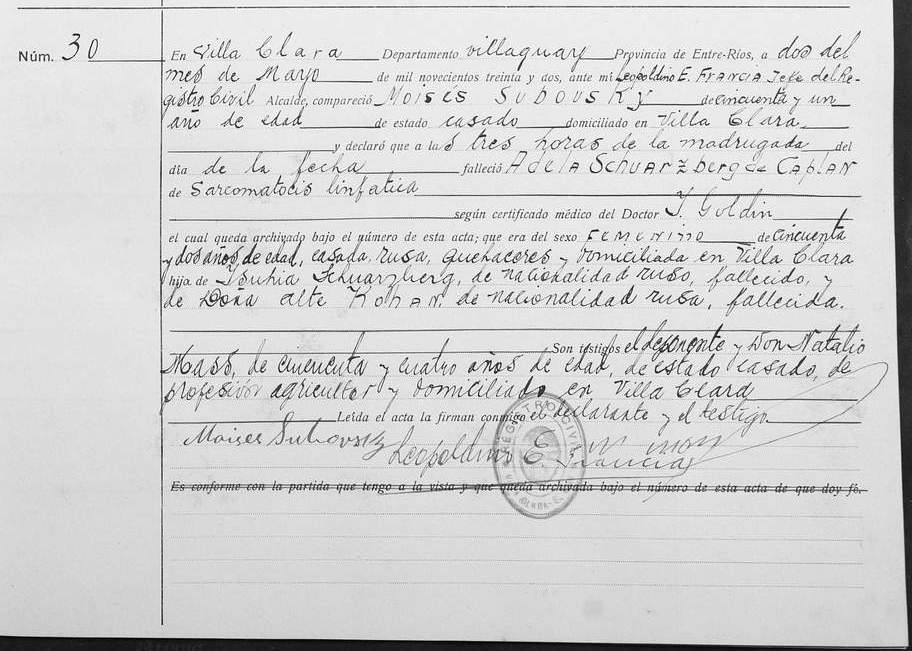 Núm. 30
En Villa Clara Departamento villaguay Provincia de Entre-Ríos, a dos del
mes de Mayo de mil novecientos treinta y dos, ante mí Leopoldino E. Francia Jefe del Re-
gistro Civil Alcalde, compareció Moisés Subovsky de cincuenta y un
año de edad de estado casado domiciliado en Villa Clara
y declaró que a las tres horas de la madrugada del
día de la fecha falleció Adela Schuarzberg de Caplan
de Sarcomatocis linfatica
según certificado médico del Doctor Y. Goldin
el cual queda archivado bajo el número de esta acta; que era del sexo Femenino de cincuenta
y dos años de edad, casada, rusa, quehaceres y domiciliada en Villa Clara
hija de Schuarzberg, de nacionalidad ruso, fallecido, y
de Doña alte de nacionalidad rusa, fallecida.
Son testigos el deponente y Don Natalio
Mass, de cincuenta y cuatro años de edad, de estado casado, de
profesión agricultor y domiciliado en Villa Clara
Leída el acta la firman conmigo el declarante y el testigo.
Moises Subovsky Leopoldino E. Francia
REGISTRO CIVIL
Es conforme con la partida que tengo a la vista y que queda archivada bajo el número de esta acta de que doy fé.